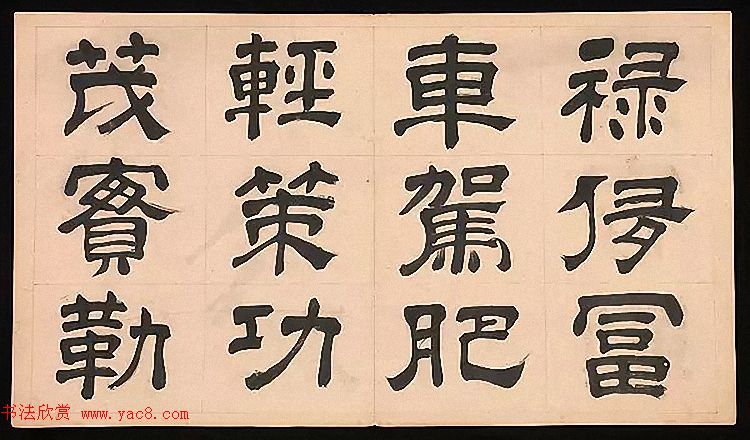 祿侈富
車駕肥
輕策功
茂實勒
书法欣赏 www.yac8.com